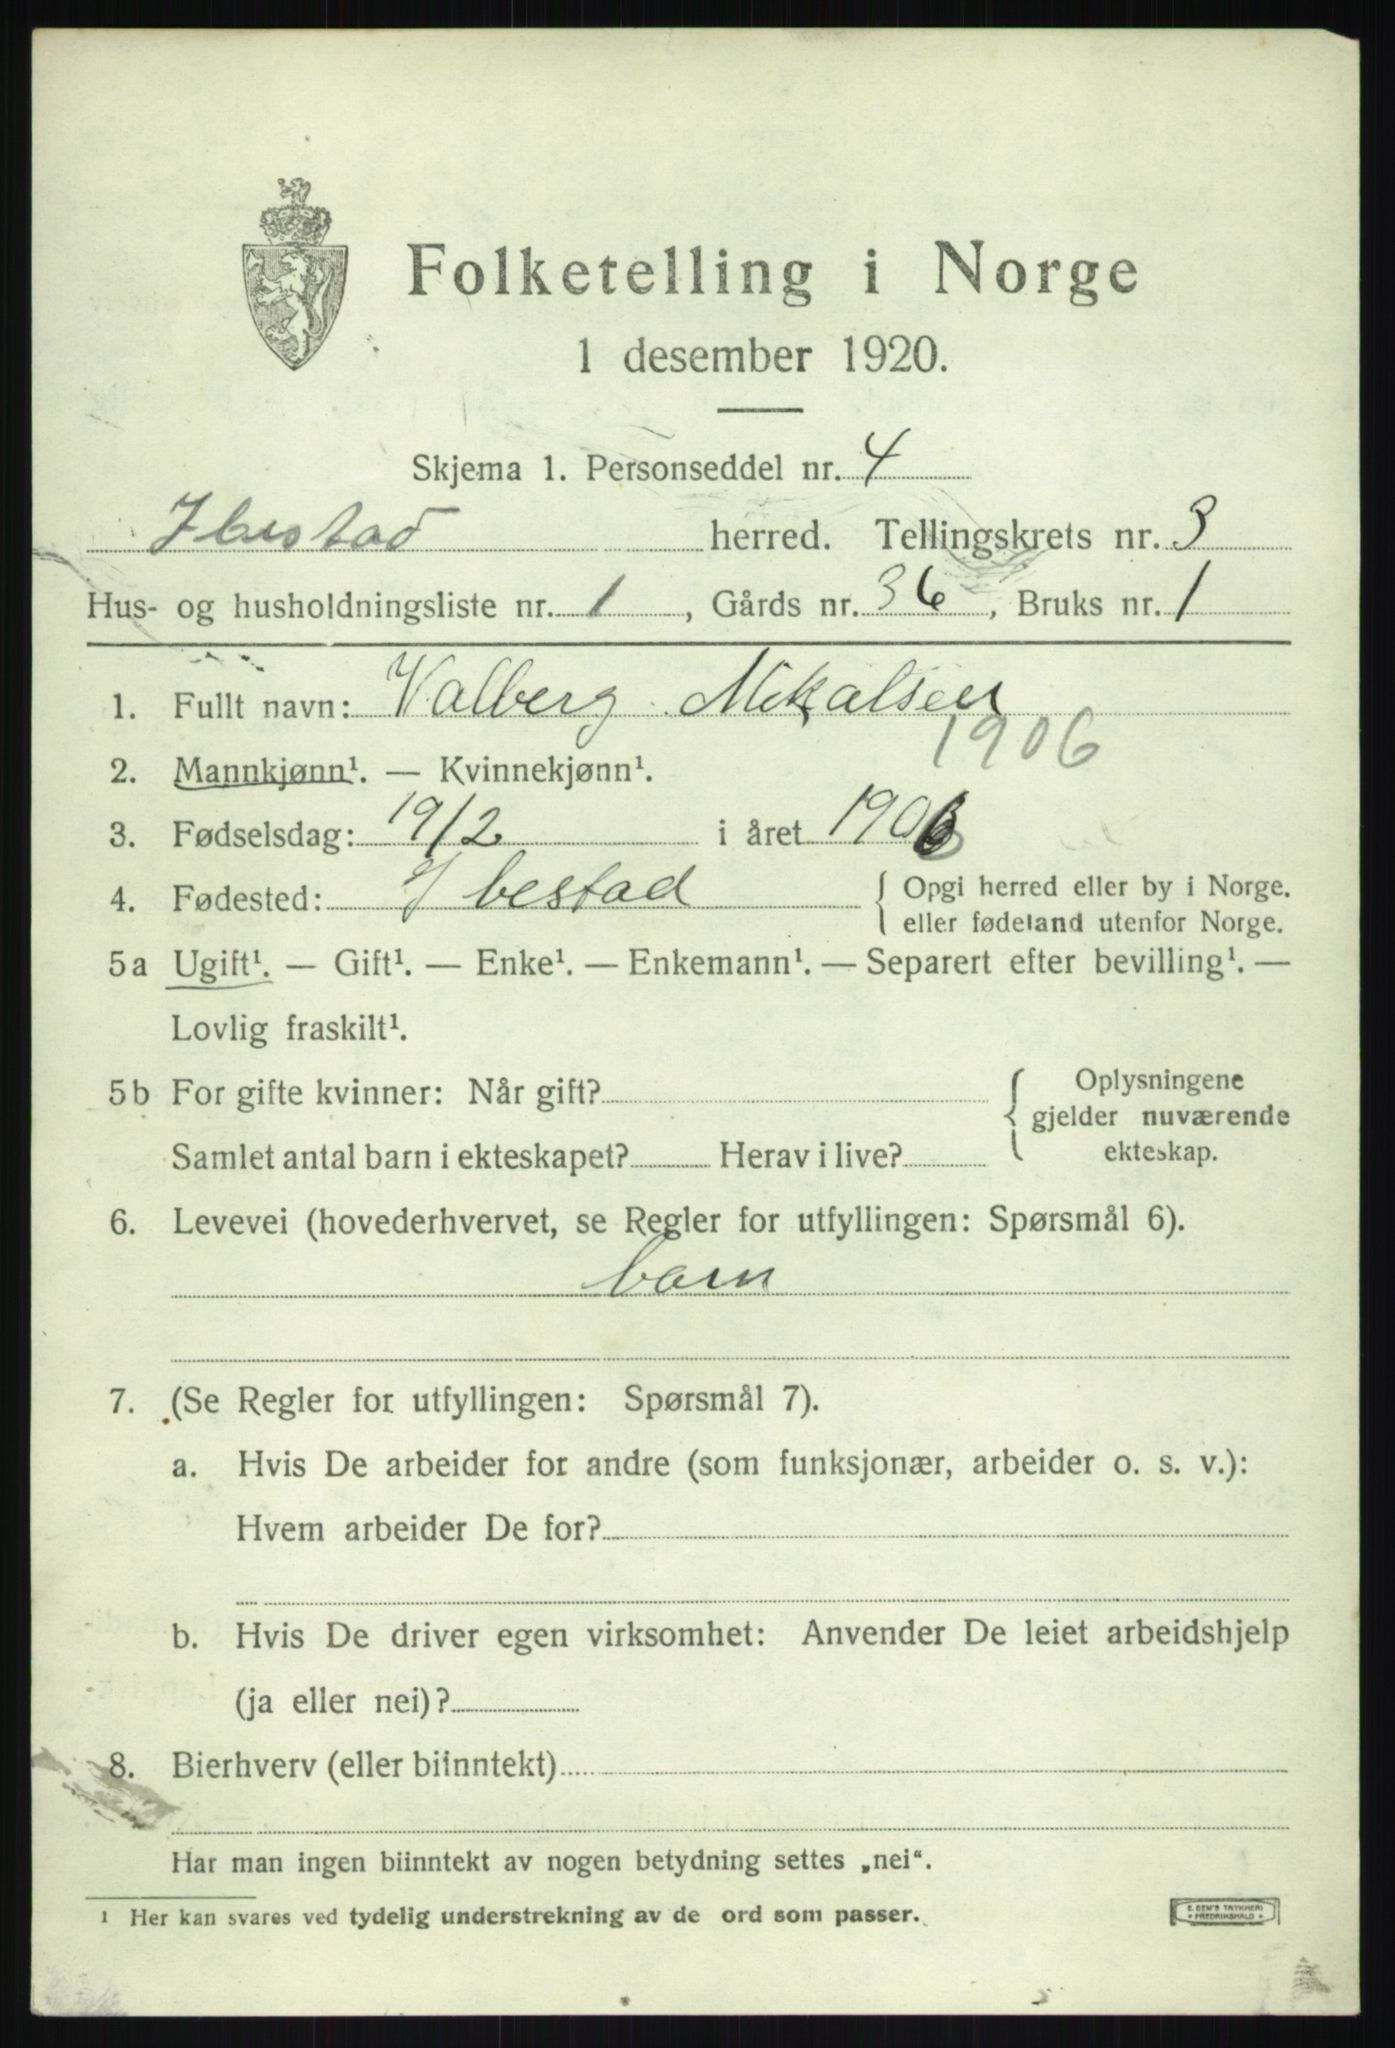 Folketelling i Norge
1 desember 1920.
Skjema 1. Personseddel nr. 4
Ibestad herred. Tellingskrets nr. 3
Hus- og husholdningsliste nr. 1, Gårds nr. 36, Bruks nr. 1
1. Fullt navn: Valberg Mikalsen
1906
2. Mannkjønn¹. — Kvinnekjønn¹.
3. Fødselsdag: 19/2 i året 1906
4. Fødested: Ibestad { Opgi herred eller by i Norge.
eller fødeland utenfor Norge.
5a Ugift¹. — Gift¹. — Enke¹. — Enkemann¹. — Separert efter bevilling¹. —
Lovlig fraskilt¹.
5b For gifte kvinner: Når gift? { Oplysningene
gjelder nuværende
Samlet antal barn i ekteskapet? Herav i live? ekteskap.
6. Levevei (hovederhvervet, se Regler for utfyllingen: Spørsmål 6).
barn
7. (Se Regler for utfyllingen: Spørsmål 7).
a. Hvis De arbeider for andre (som funksjonær, arbeider o. s. v.):
Hvem arbeider De for?
b. Hvis De driver egen virksomhet: Anvender De leiet arbeidshjelp
(ja eller nei)?
8. Bierhverv (eller biinntekt)
Har man ingen biinntekt av nogen betydning settes „nei“.
¹ Her kan svares ved tydelig understrekning av de ord som passer.
E. SEM'S TRYKKERI
FREDRIKSHALD